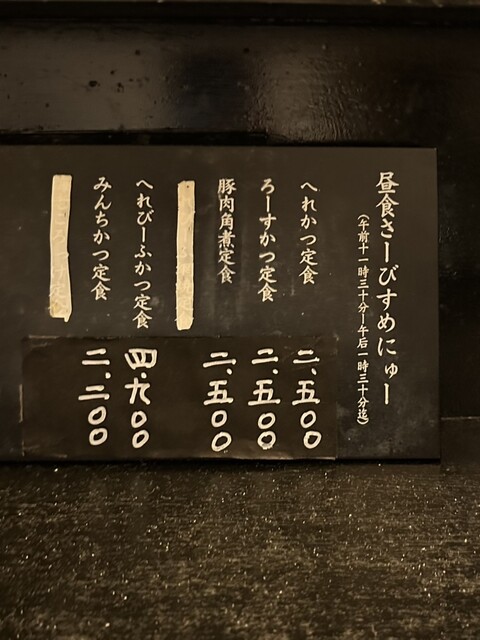 昼食さーびすめにゅー
(午前十一時三十分ー午后一時三十分迄)
へれかつ定食 二、五〇〇
ろーすかつ定食 二、五〇〇
豚肉角煮定食 二、五〇〇
へれびーふかつ定食 四、九〇〇
みんちかつ定食 二、二〇〇